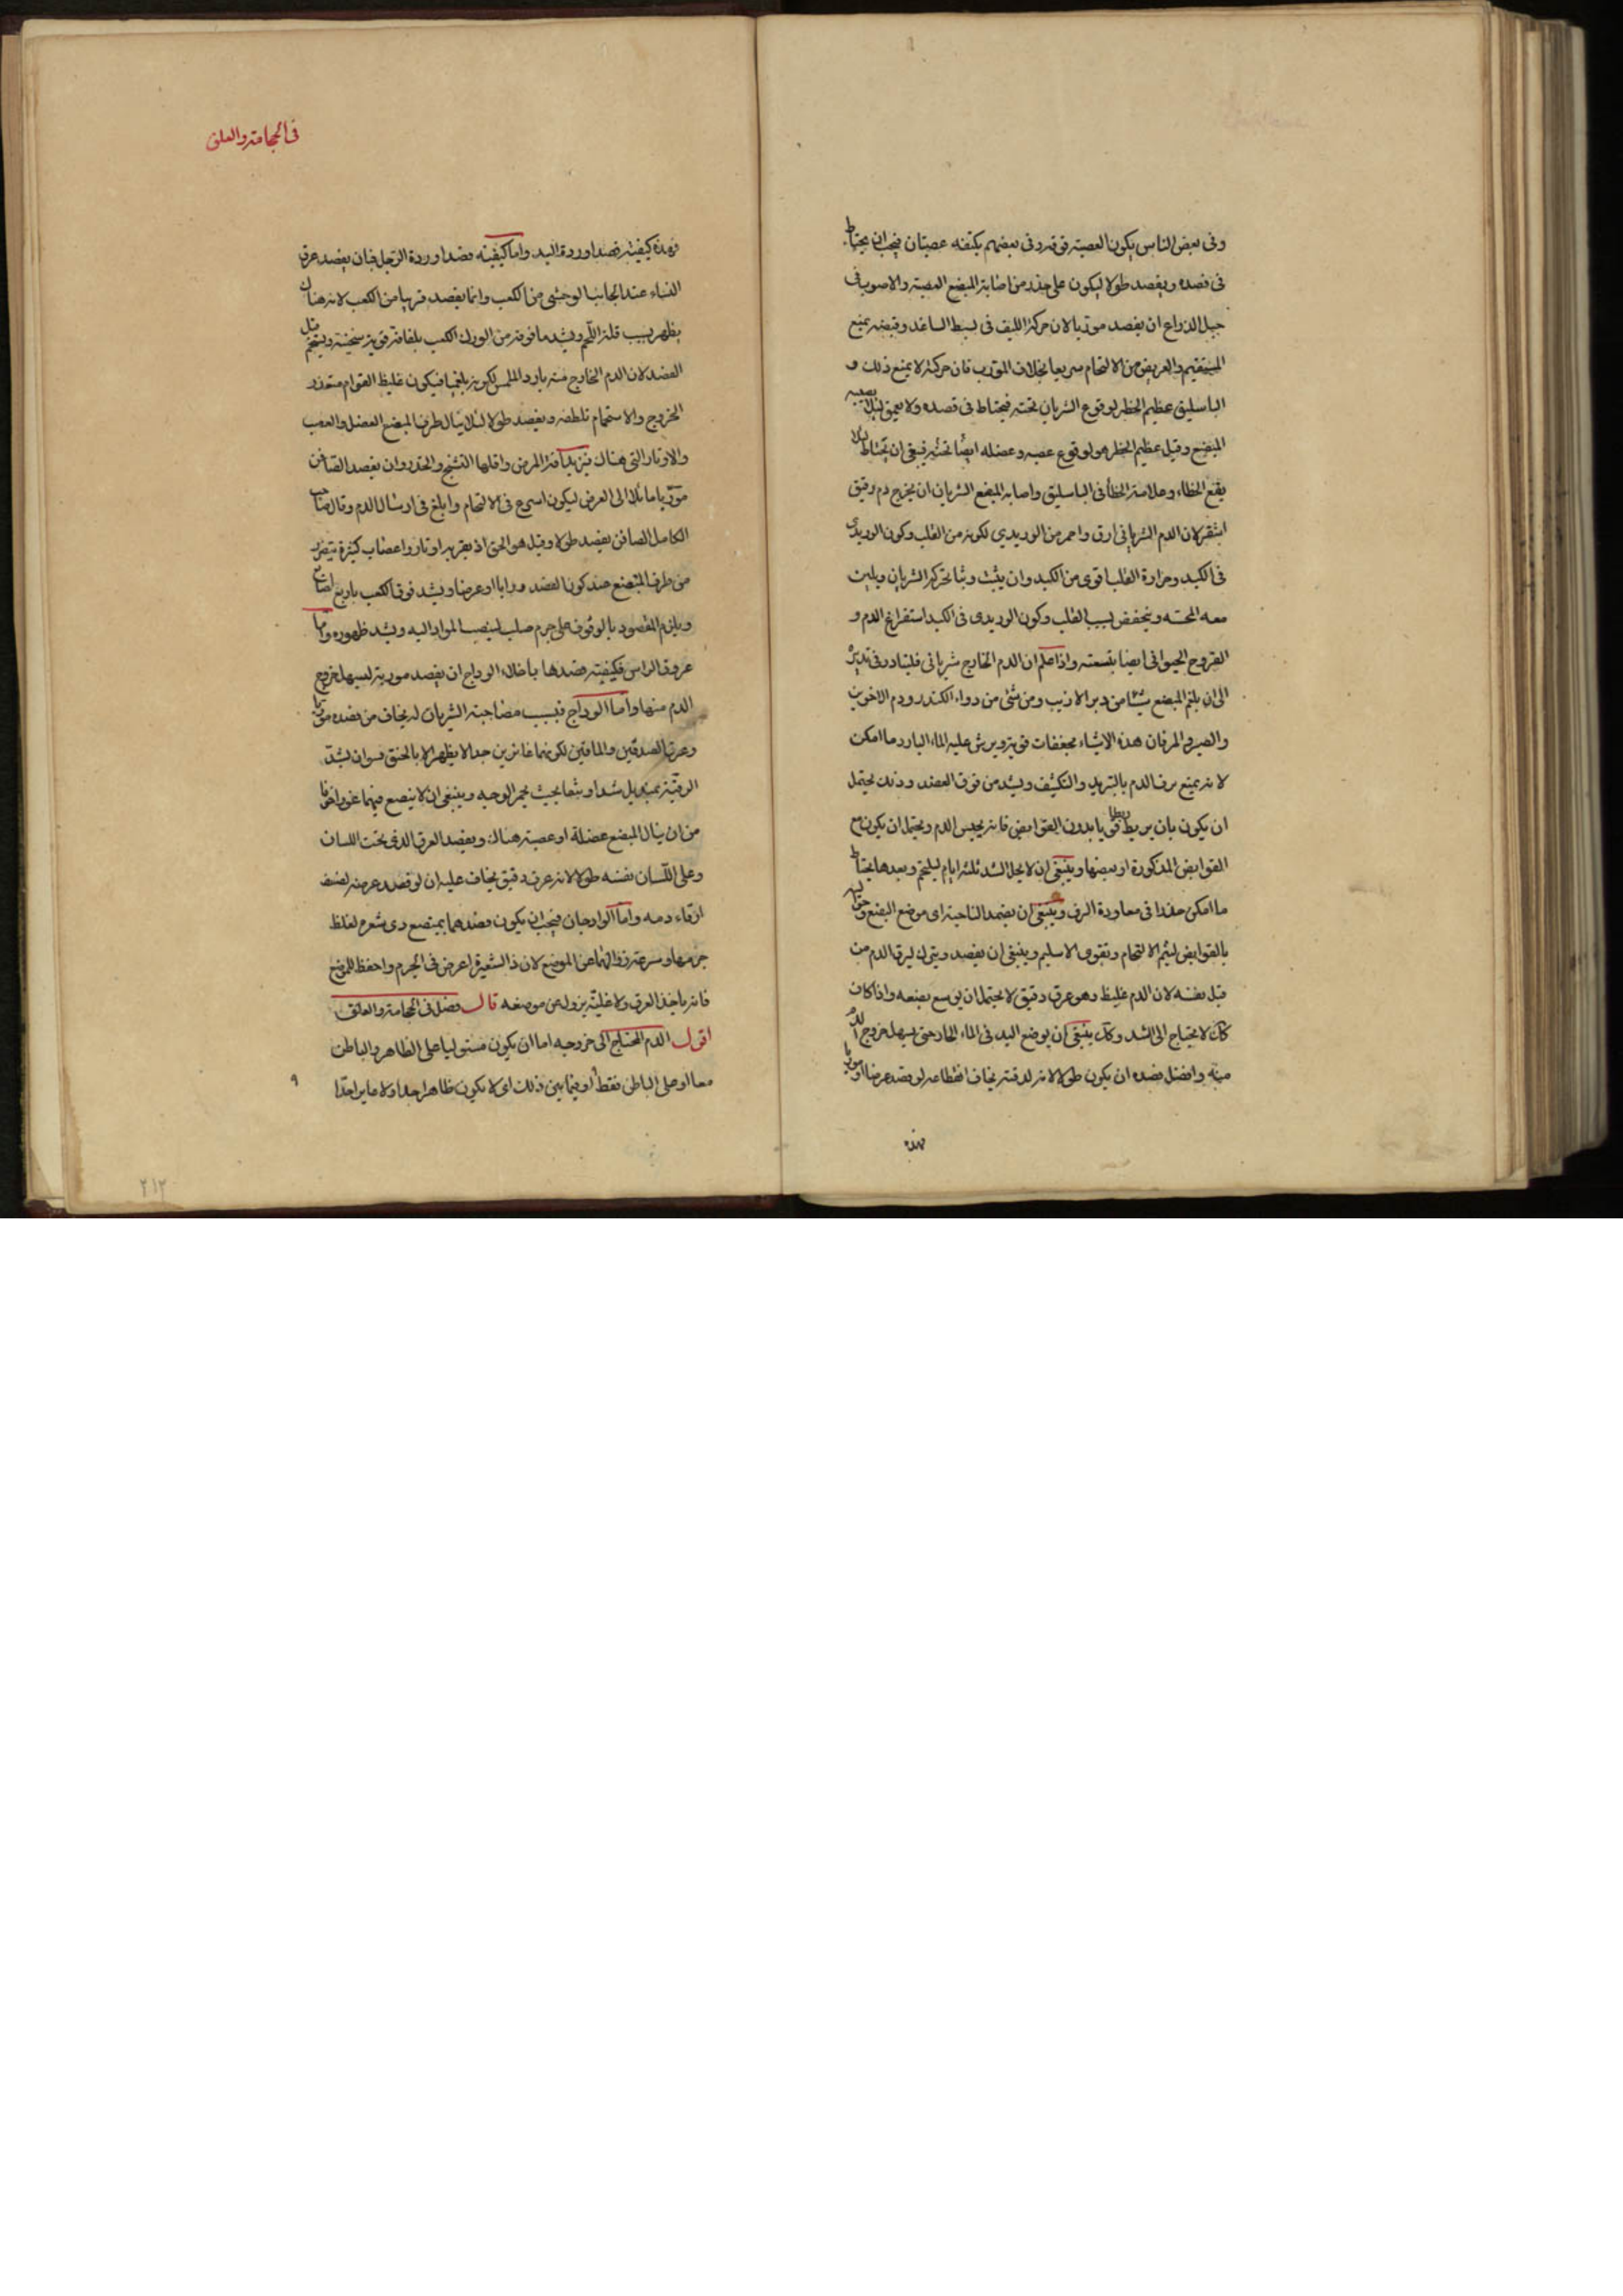 وفى بعض الناس يكون العصبة فوقه وفى بعضهم يكتنفه عصبتان فيجب ان يحتاط
فى فصده ويفصد طولا ليكون على حذر من اصابة المبضع العصبة والاصوب فى
حبل الذراع ان يفصد موربا لان حركة الليف فى بسط الساعد وقبضه يمنع
المستقيم والعريض من الالتحام سريعا بخلاف المورب فان حركته لا يمنع ذلك و
الباسليق عظيم الخطر لوقوع الشريان تحته فيحتاط فى فصده ولا يعمق لئلا يصيبه
المبضع وقيل عظيم الخطر هو لوقوع عصبه وعضله ايضا تحته فينبغى ان يحتاط لئلا
يقع الخطاء وعلامة الخطأ فى الباسليق واصابه المبضع الشريان ان يخرج دم رقيق
اشقر لان الدم الشريانى ارق واحمر من الوريدي لكونه من القلب وكون الوريدى
فى الكبد وحرارة القلب اقوى من الكبد وان يثب وثبا لحركة الشريان ويلين
معه المجسه وينخفض بسبب القلب وكون الوريدى فى الكبد استفراغ الدم و
الروح الحيوانى ايضا بتسعته واذا علم ان الدم الخارج شريانى فليبادر فى تدبيره
الى ان يلقم المبضع شيئا من وبر الارنب ومن شئ من دواء الكندر ودم الاخوين
والصبر والمر فان هذه الاشياء مجففات قوية ويرش عليه الماء البارد ما امكن
لانه يمنع نزف الدم بالتبريد والتكثيف ويشد من فوق الفصد وذلك يحتمل
ان يكون بان يربط ربطا قويا بدون القوابض فانه يحبس الدم ويحتمل ان يكون مع
القوابض المذكورة او بعضها وينبغى ان لا يحل الشد ثلثه ايام ليلتحم وبعدها يحتاط
ما امكن حذرا فى معاودة النزف وينبغى ان يضمد الناحية اى موضع البضع وحواليه
بالقوابض ليتم الالتحام وتقوى الاسليم وينبغى ان يفصد ويترك ليرقا الدم من
قبل نفسه لان الدم غليظ وهو عرق دقيق لا يحتمل ان يوسع بضعه واذا كان
كك لا يحتاج الى الشد وكك ينبغى ان يوضع اليد فى الماء الحار حتى يسهل خروج الدم
منه وافضل فصده ان يكون طولا لانه لدقته يخاف انقطاعه لو فصد عرضا او موربا
فهذه
فى الحجامة والعلق
فهذه كيفية فصد اوردة اليد واما كيفيته فصد اوردة الرجل فبان يفصد عرق
النساء عند الجانب الوحشى من الكعب وانما يفصد قريبا من الكعب لانه هناك
يظهر بسبب قلة اللحم ويشد ما فوقه من الورك الكعب بلفافة قوية سخينة ويستحم قبل
الفصد لان الدم الخارج منه بارد الملمس لكونه بلغميا فيكون غليظ القوام متعذر
الخروج والاستحمام تلطفه ويفصد طولا لئلا ينال طرف المبضع العضل والعصب
والاوتار التى هناك فيزيد آفة المرض واقلها التشنج والخدر وان يفصد الصافن
موربا مائلا الى العرض ليكون اسرع فى الالتحام وابلغ فى ارسال الدم وقال صاحب
الكامل الصافن يفصد طولا وقيل هو الحق اذ بقربه اوتار واعصاب كثيرة يتضرر
من طرف المبضع عند كون الفصد ورابا او عرضا ويشد فوق الكعب باربع اصابع
ويلزم المفصود بالوقوف على جرم صلب لينصب المواد اليه ويشد ظهوره واما
عروق الراس فكيفية فصدها باخلاء الوداج ان يفصد موربة ليسهل خروج
الدم منها واما الوداج فبسبب مصاحبة الشريان له يخاف من فصده موربا
وعرق الصدغين والماقين لكونهما غائرين جدا لا يظهر الا بالخنق وهو ان يشد
الرقبة بمنديل شدا وثيقا بحيث يحمر الوجه وينبغى ان لا يبضع فيهما غورا خوفا
من ان ينال المبضع عضلة او عصبة هناك ويفصد العرق الذى تحت اللسان
وعلى اللسان نفسه طولا لانه عرق دقيق يخاف عليه ان لو فصد عرضه لضعف
ارقاء دمه واما الوداجان فيجب ان يكون فصدهما بمبضع ذى شعره لغلظ
جرمها وسرعة زوالهما عن الموضع لان ذا الشعيرة اعرض فى الجرم واحفظ للموضع
فانه ياخذ العرق ولا خليه يزول عن موضعه قال فصل فى الحجامة والعلق
اقول الدم المحتاج الى خروجه اما ان يكون مستوليا على الظاهر والباطن
معا او على الباطن فقط او فيما بين ذلك اى لا يكون ظاهرا جدا ولا غايرا جدا
٢١٢